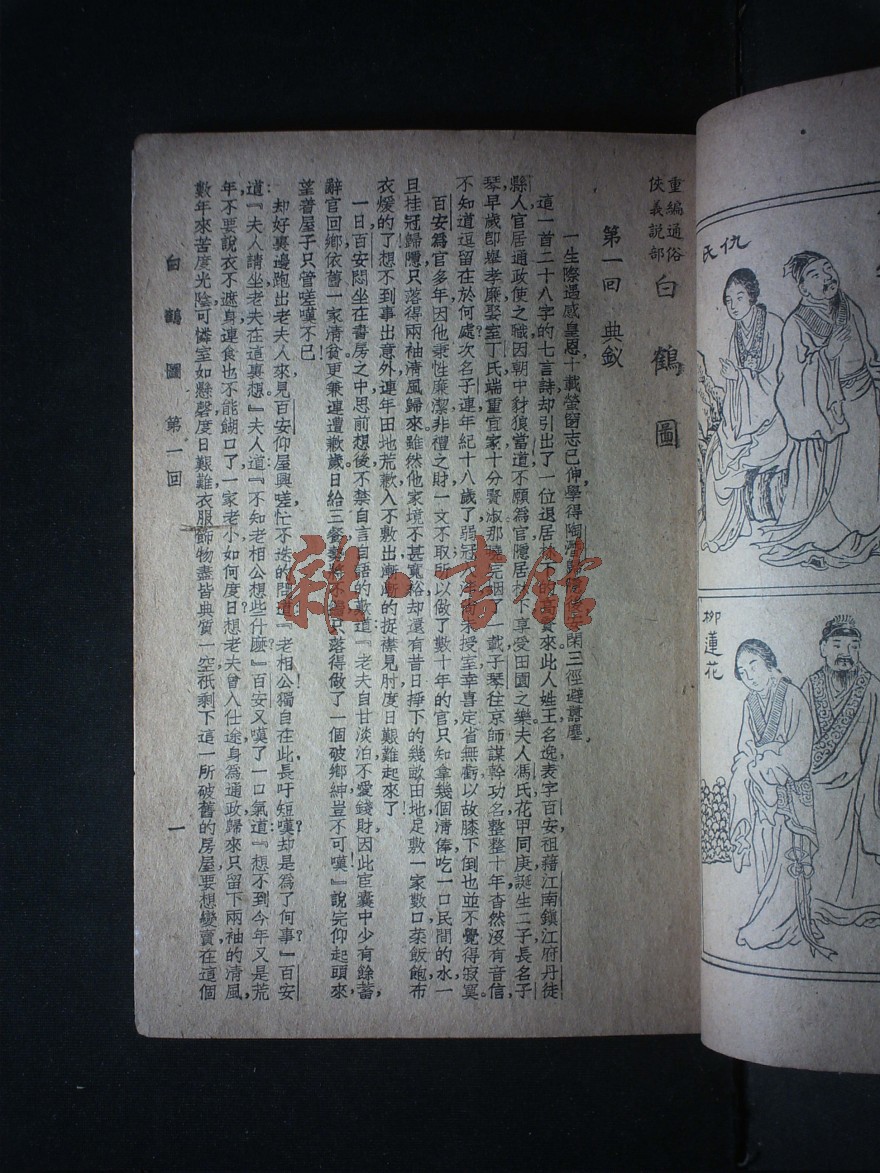 重編通俗
俠義說部
白鶴圖
第一回 典釵
一生際遇感皇恩，十載螢窗志已伸，學得陶 安閑三徑避囂塵。
這一首二十八字的七言詩，却引出了一位退居林下的 來，此人姓王名逸，表字百安，祖藉江南鎭江府丹徒
縣人，官居通政使之職，因朝中豺狼當道，不願爲官，隱居林下，享受田園之樂，夫人馮氏，花甲同庚，誕生二子，長名子
琴，早歲卽舉孝廉，娶室丁氏，端重宜家，十分賢淑，那曉完姻了一載，子琴往京師謀幹功名，整整十年，杳然沒有音信，
不知道逗留在於何處？次名子連，年紀十八歲了，弱冠 授室，幸喜定省無虧，以故膝下倒也並不覺得寂寞。
百安爲官多年，因他秉性廉潔，非禮之財，一文不取，所以做了數十年的官，只知拿幾個清俸，吃一口民間的水，一
且桂冠歸隱，只落得兩袖清風歸來，雖然他家境不甚寬裕，却還有昔日掙下的幾畝田地，足敷一家數口菜飯飽布
衣煖的了，想不到事出意外，連年田地荒歉，入不敷出，漸漸的捉襟見肘，度日艱難起來了！
一日百安悶坐在書房之中，思前想後，不禁自言自語的歎道：『老夫自甘淡泊，不愛錢財，因此宦囊中少有餘蓄，
辭官回鄉，依舊一家清貧，更兼連遭歉歲，日給三餐 只落得做了一個破鄉紳，豈不可嘆！』說完，仰起頭來，
望着屋子，只管嗟嘆不已！
却好裏邊跑出老夫人來，見百安仰屋興嗟，忙不迭的問道：『老相公獨自在此長吁短嘆，却是爲了何事？』百安
道：『夫人請坐，老夫在這裏想。』夫人道：『不知老相公想些什麼？』百安又嘆了一口氣道：『想不到今年又是荒
年，不要說衣不遮身，連食也不能餬口了，一家老小，如何度日，想老夫曾入仕途，身爲通政，歸來只留下兩袖的清風，
數年來苦度光陰，可憐室如懸磬，度日艱難，衣服飾物，盡皆典質一空，祇剩下這一所破舊的房屋，要想變賣，在這個
白鶴圖 第一回 一
仇氏
柳蓮花
雜·書館